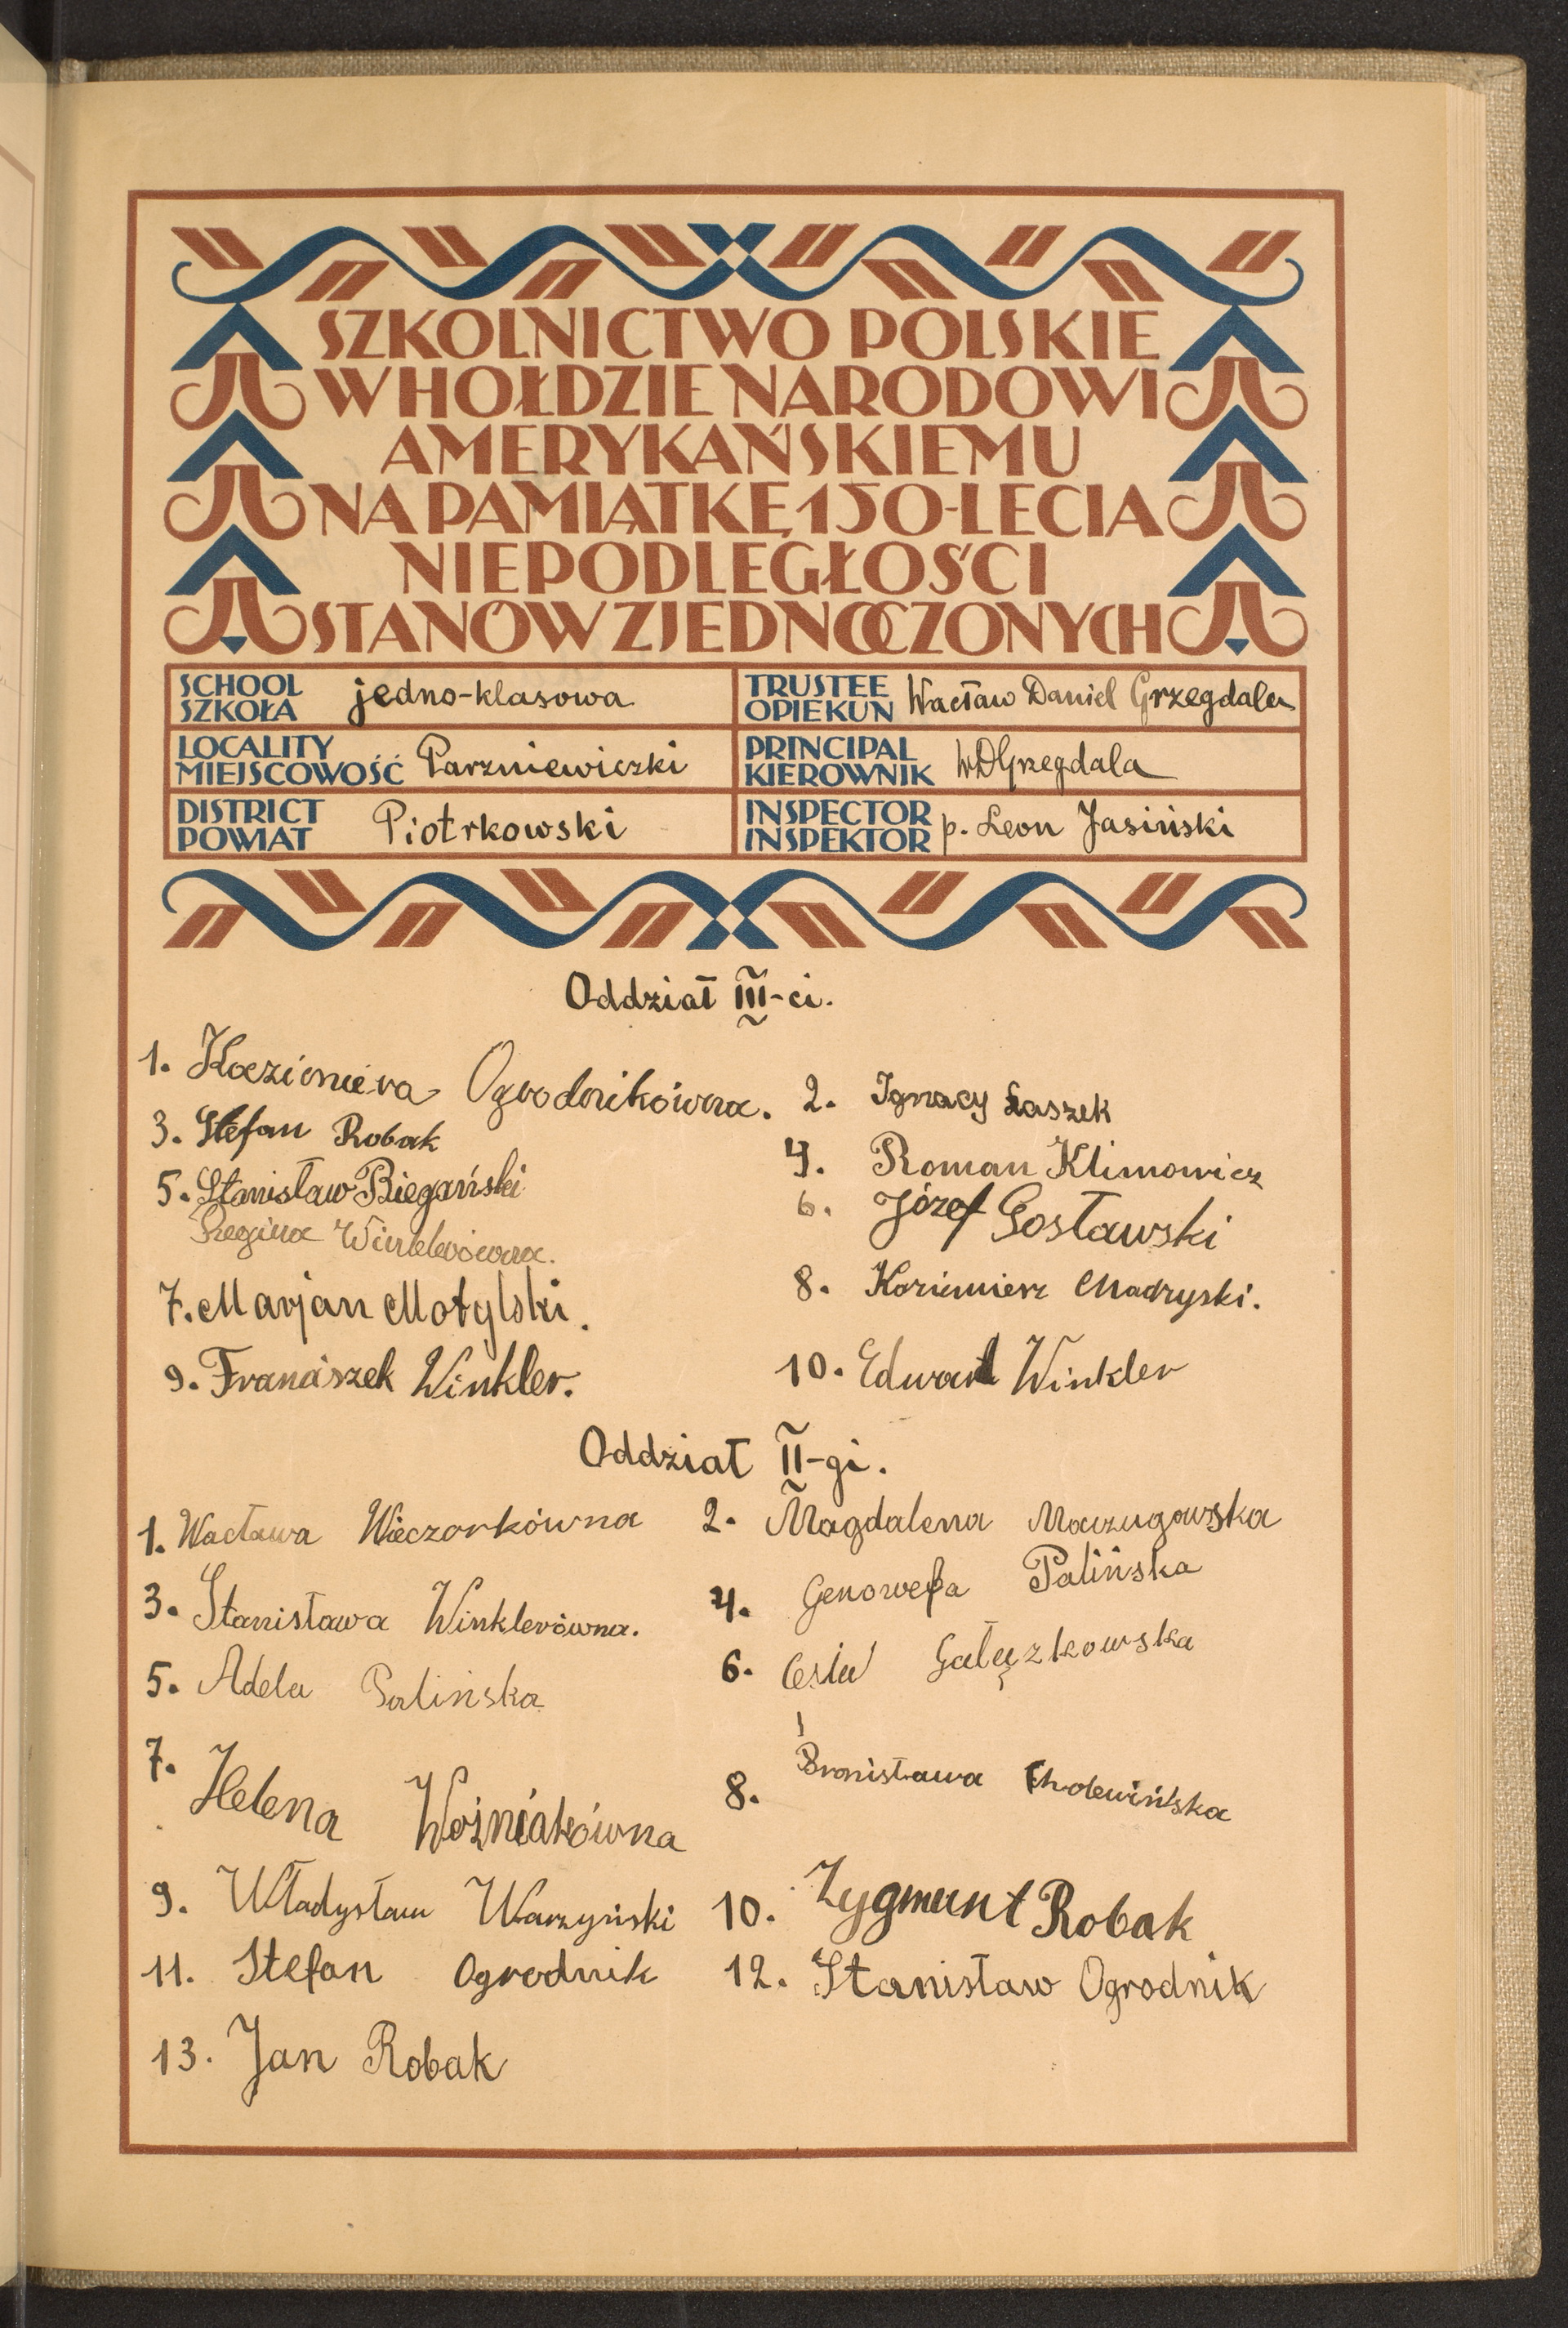 SZKOLNICTWO POLSKIE
W HOŁDZIE NARODOWI
AMERYKAŃSKIEMU
NA PAMIĄTKĘ 150-LECIA
NIEPODLEGŁOŚCI
STANÓW ZJEDNOCZONYCH
SCHOOL
SZKOŁA jedno-klasowa
TRUSTEE
OPIEKUN Wacław Daniel Grzegdala
LOCALITY
MIEJSCOWOŚĆ Parzniewiczki
PRINCIPAL
KIEROWNIK WDGrzegdala
DISTRICT
POWIAT Piotrkowski
INSPECTOR
INSPEKTOR p. Leon Jasiński
Oddział III-ci.
1. Kazimiera Ogrodnikówna. 2. Ignacy Łaszek
3. Stefan Robak 4. Roman Klimowicz
5. Stanisław Biegański 6. Józef Gosławski
Regina Winklerówna.
7. Marjan Motylski. 8. Kazimierz Madryski.
9. Franciszek Winkler. 10. Edward Winkler
Oddział II-gi.
1. Wacława Wieczorkówna 2. Magdalena Mazugowska
3. Stanisława Winklerówna. 4. Genowefa Palińska
5. Adela Palińska 6. Cesia Gałęzkowska
7. Helena Woźniakówna 8. Bronisława Cholewińska
9. Władysław Warzyński 10. Zygmunt Robak
11. Stefan Ogrodnik 12. Stanisław Ogrodnik
13. Jan Robak